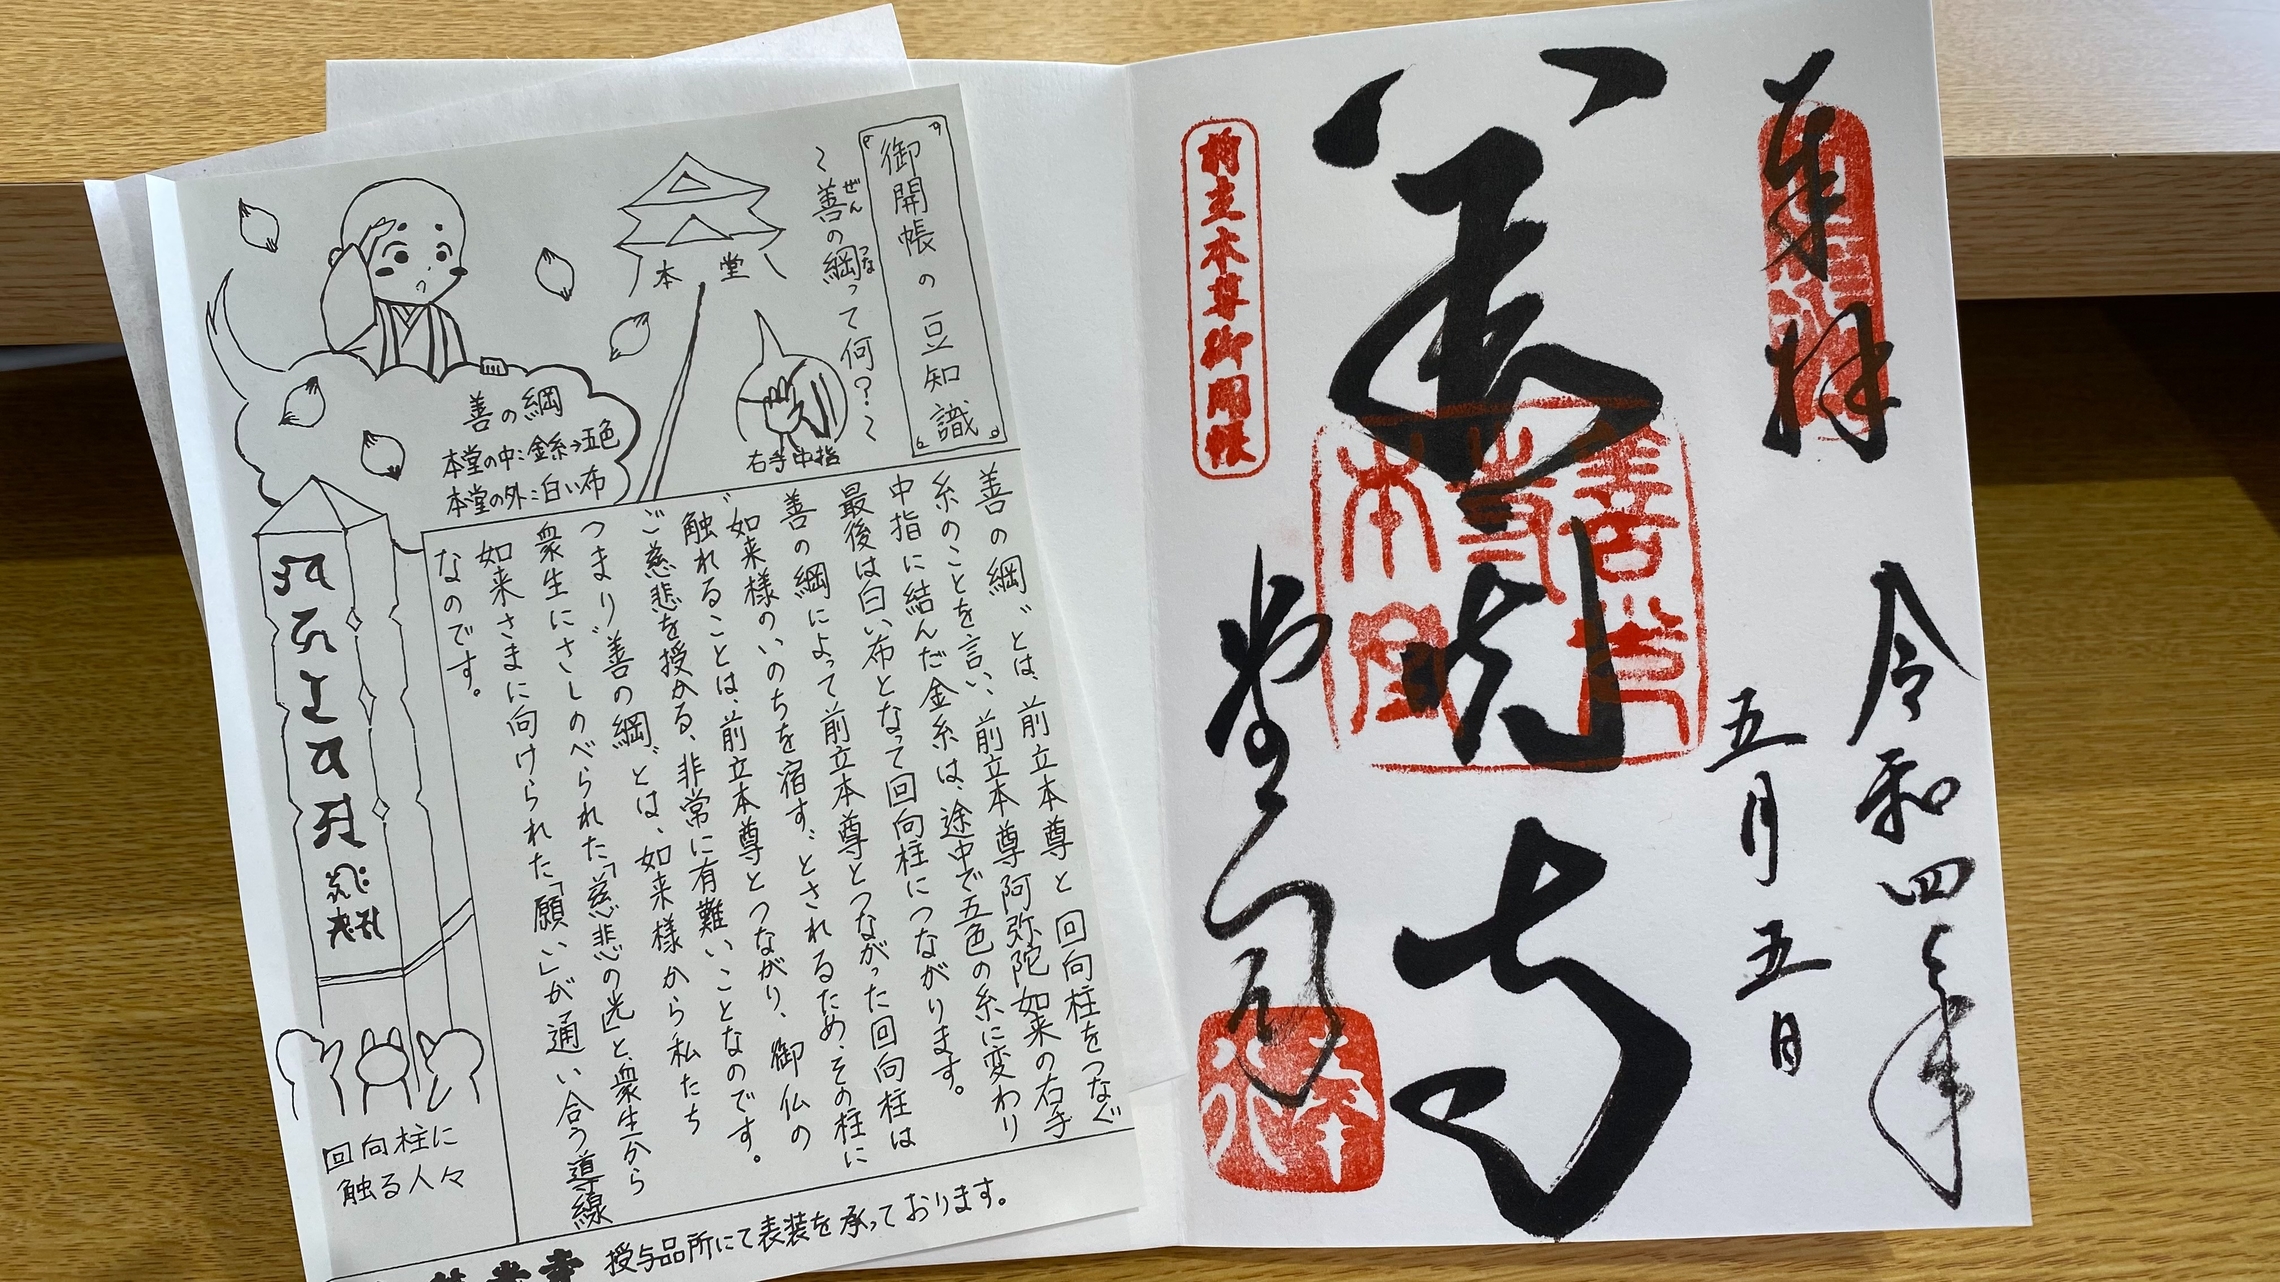 奉拝
令和四年
五月五日
善光寺
堂司
前立本尊御開帳
御開帳の豆知識
～善の綱って何？～
ぜん
つな
本堂
右手中指
善の綱
本堂の中：金糸→五色
本堂の外：白い布
善の綱〟とは、前立本尊と回向柱をつなぐ
糸のことを言い、前立本尊阿弥陀如来の右手
中指に結んだ金糸は、途中で五色の糸に変わり
最後は白い布となって回向柱につながります。
善の綱によって前立本尊とつながった回向柱は
〝如来様のいのちを宿す〟とされるため、その柱に
触れることは、前立本尊とつながり、御仏の
ご慈悲を授かる、非常に有難いことなのです。
つまり〝善の綱〟とは、如来様から私たち
衆生にさしのべられた「慈悲の光」と、衆生から
如来さまに向けられた「願い」が通い合う導線
なのです。
回向柱に
触る人々
授与品所にて表装を承っております。